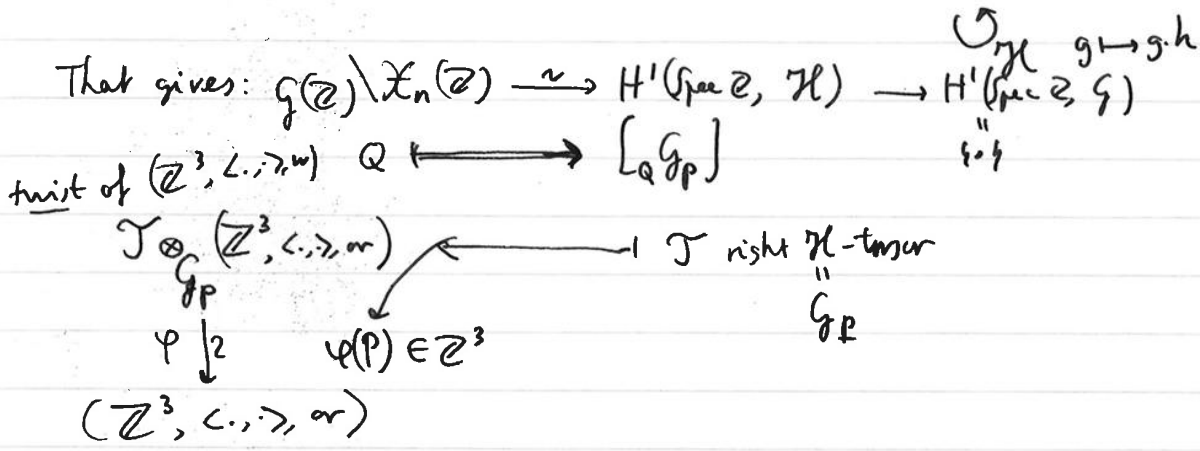 ↺ℋ g ↦ g·h
That gives: G(ℤ)\𝒳ₙ(ℤ) ⥲ H¹(Spec ℤ, ℋ) → H¹(Spec ℤ, G)
Q ⟷ [_Q G_P] " {·}
twist of (ℤ³, <·,·>, or)
𝒯 ⊗_{G_P} (ℤ³, <·,·>, or) ⟵ 𝒯 right ℋ-torsor
"
φ ↓≀ φ(P) ∈ ℤ³ G_P
(ℤ³, <·,·>, or)